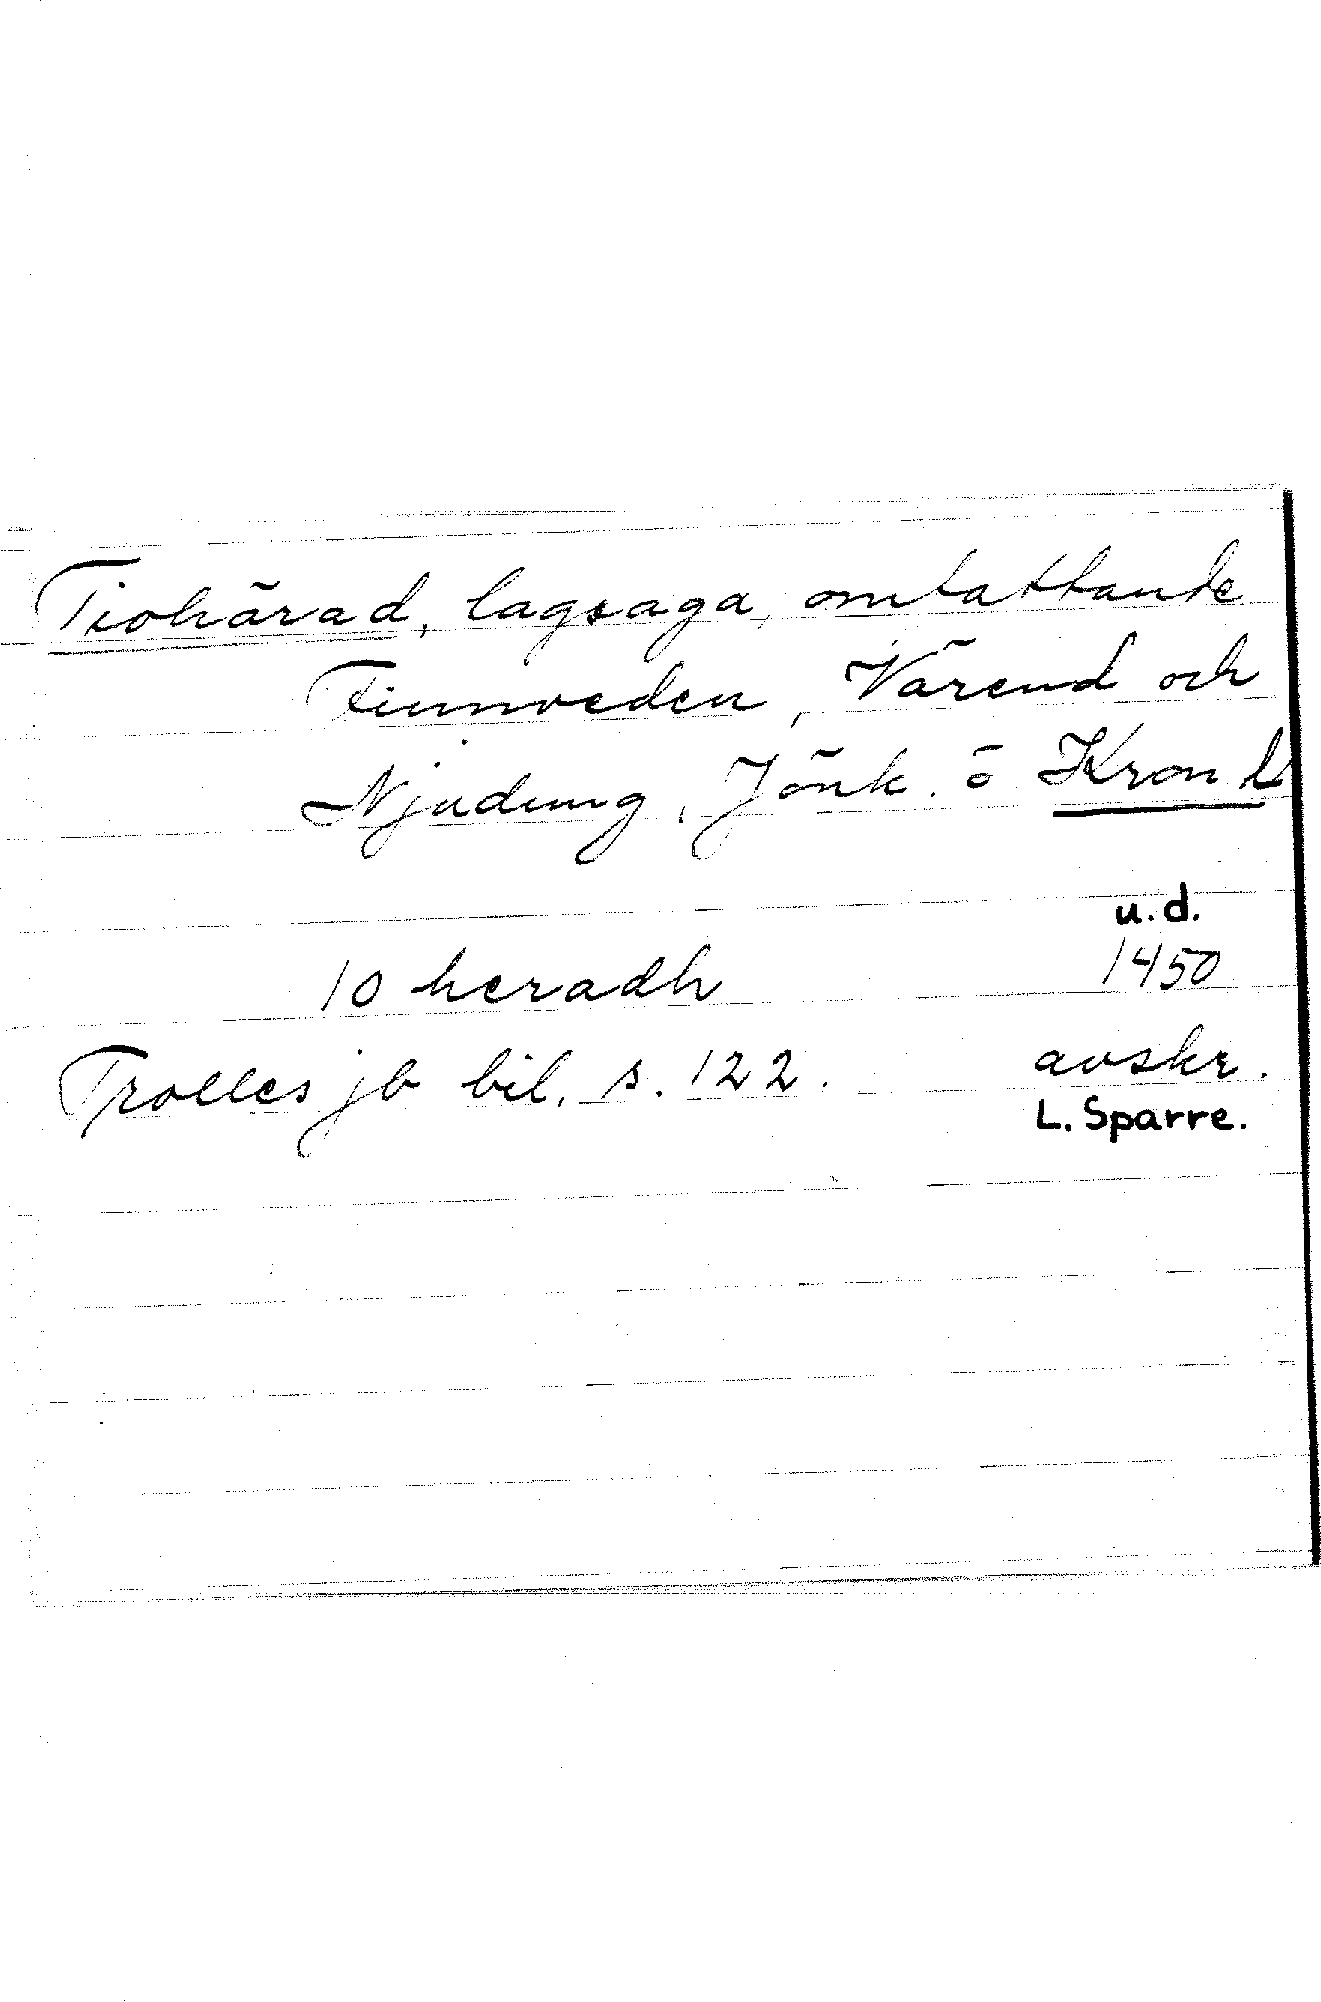 Tiohärad, lagsaga, omfattande
Finnveden, Värend och
Njudung, Jönk. o Kron l
u.d.
10 heradh 1450
Trolles jb bil. s. 122. avskr.
L. Sparre.